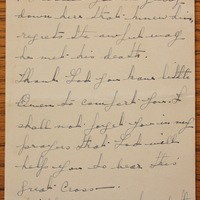 down here that knew him
regrets the awful way
he met his death.
Thank God you have little
Owen to comfort you. I
shall not forget you in my
prayers that God will
help you to bear this
great Cross —